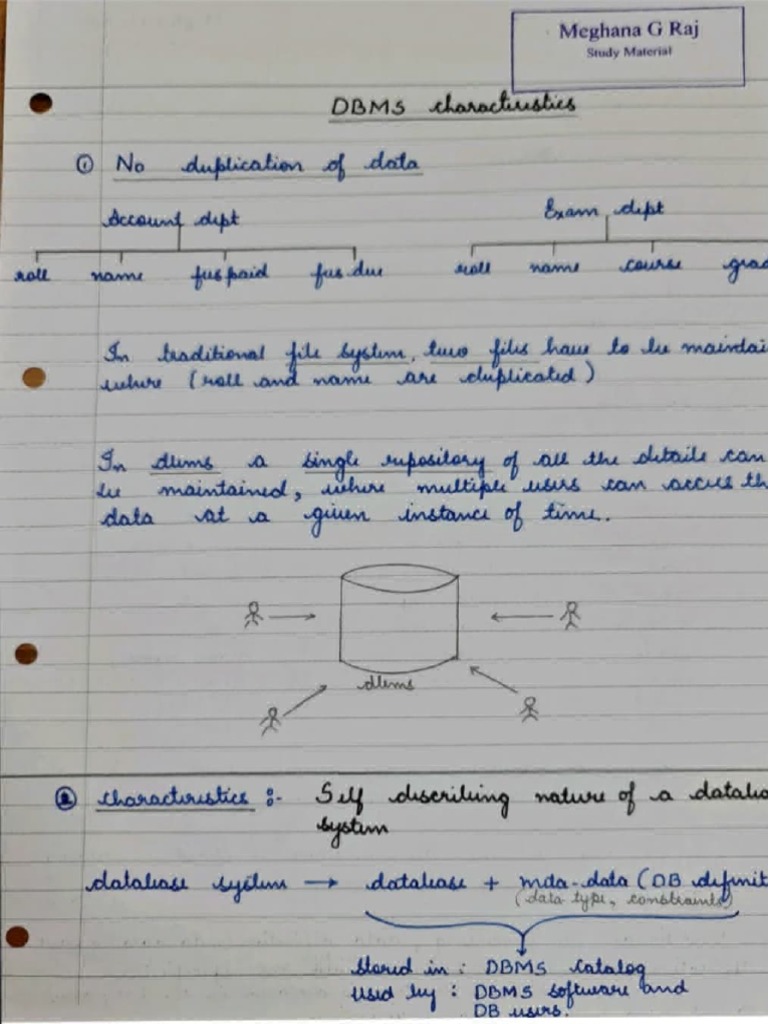 Meghana G Raj
Study Material
DBMS characteristics
① No duplication of data
Account dept
Exam dept
roll name fees paid fees due
roll name course grad
In traditional file system, two files have to be maintai
where (roll and name are duplicated)
In dbms a single repository of all the details can
be maintained, where multiple users can access th
data at a given instance of time.
dbms
② characteristics :- Self describing nature of a databa
system
database system → database + meta-data (DB definit
(data type, constraints)
Stored in : DBMS catalog
Used by : DBMS software and
DB users.